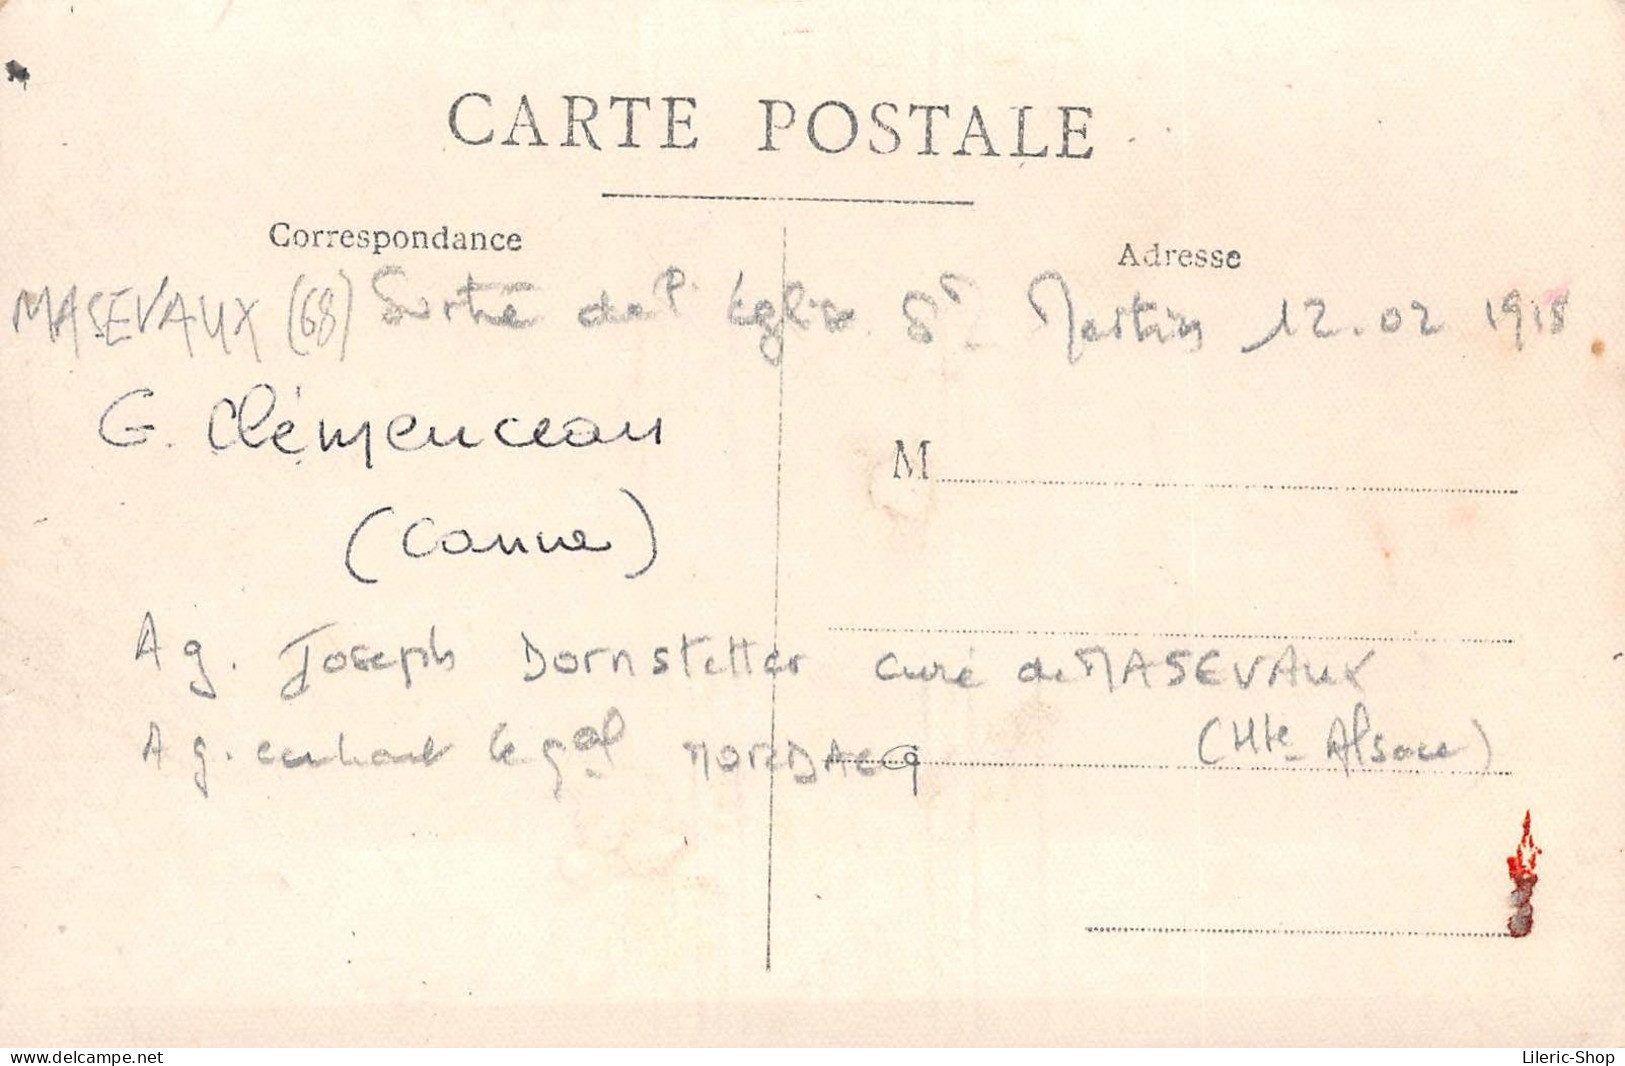 CARTE POSTALE
Correspondance
Adresse
MASEVAUX (68) Sortie de l'église St Martin 12.02 1918
G. Clémenceau
M
(Canne)
A g. Joseph Dornstetter curé de MASEVAUX
(Hte Alsace)
A g. le gal MORDACQ
www.delcampe.net
Lileric-Shop